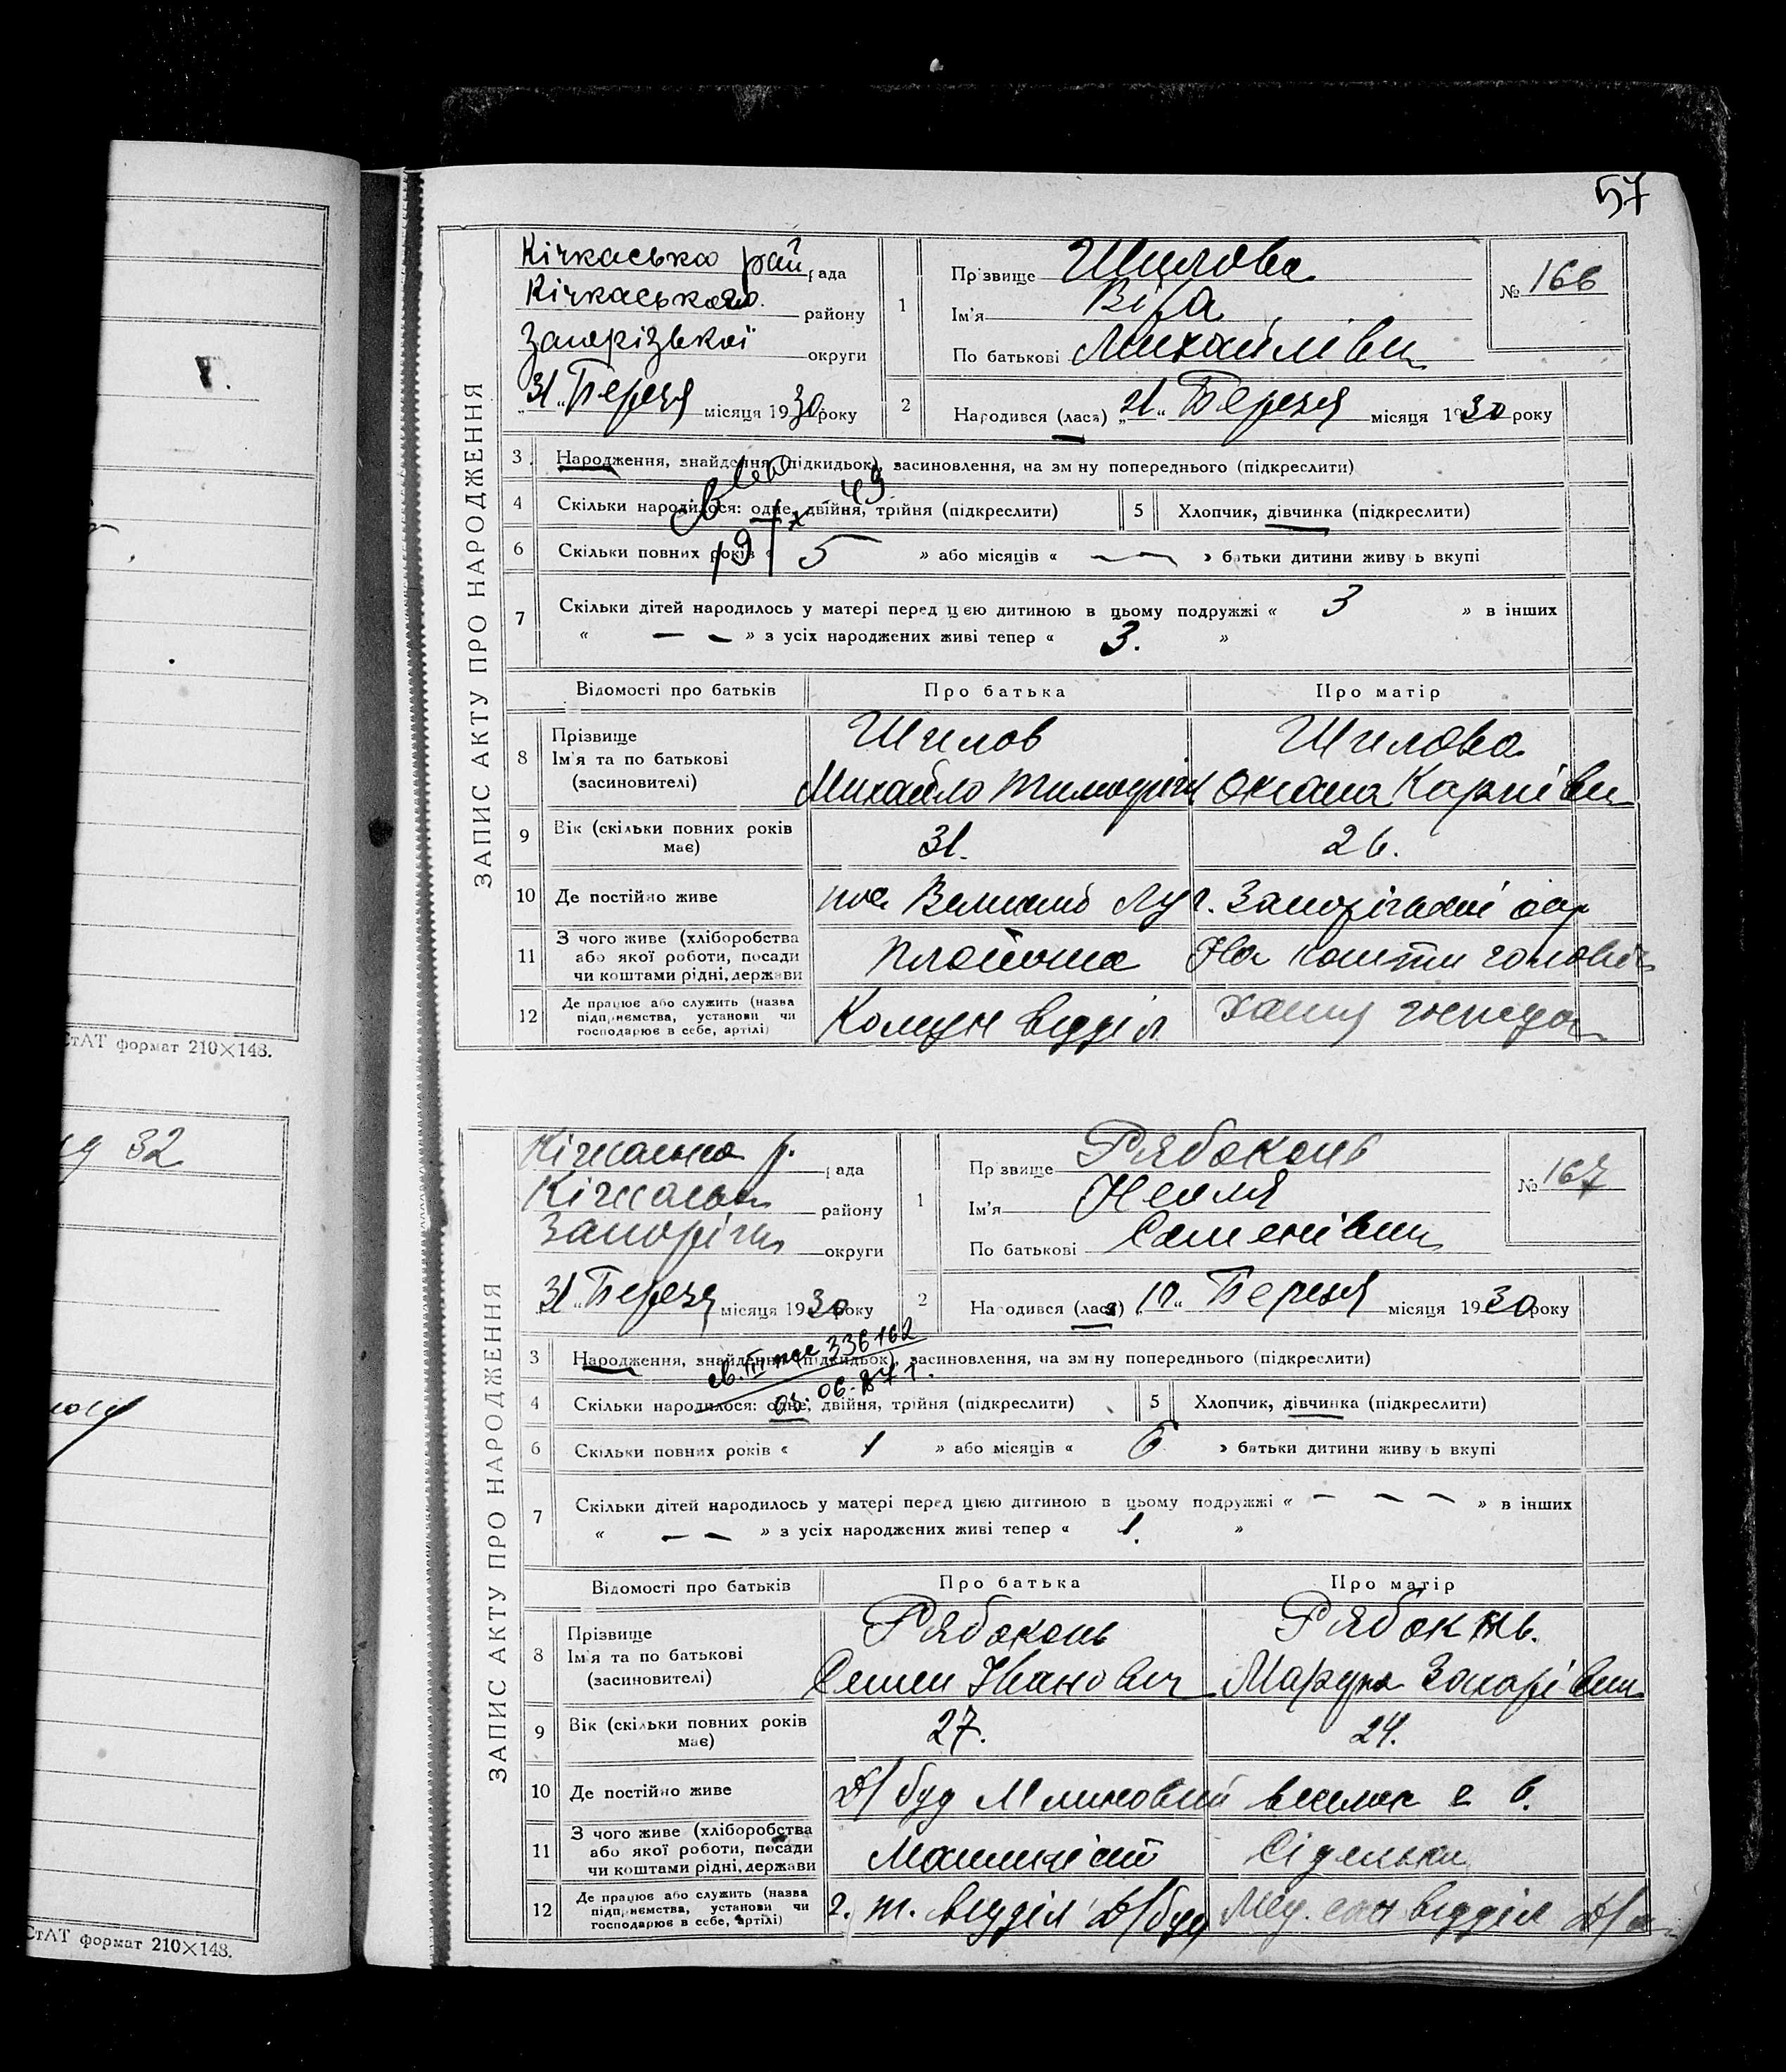 57
ЗАПИС АКТУ ПРО НАРОДЖЕННЯ
Кічкаська рай рада
Кічкаського району
Запорізької округи
„31“ Березня місяця 1930 року
1
Прізвище Шилова
Ім'я Віра
По батькові Михайлівна
№ 166
2 Народився (лася) „21“ Березня місяця 1930 року
3 Народження, знайдення (підкидьок), засиновлення, на зміну попереднього (підкреслити)
4 Скільки народилося: одне, двійня, трійня (підкреслити)
5 Хлопчик, дівчинка (підкреслити)
6 Скільки повних років « 5 » або місяців « — » батьки дитини живуть вкупі
7 Скільки дітей народилось у матері перед цією дитиною в цьому подружжі « 3 » в інших
« — — » з усіх народжених живі тепер « 3. »
Відомості про батьків Про батька Про матір
8 Прізвище
Ім'я та по батькові
(засиновителі)
Шилов
Михайло
Шилова
Оксана Карпівна
9 Вік (скільки повних років має) 31. 26.
10 Де постійно живе пос Великий Луг.
11 З чого живе (хліборобства
або якої роботи, посади
чи коштами рідні, держави
На кошти
12 Де працює або служить (назва
підприємства, установи чи
господарює в себе, артілі)
Комун відділ
ЗАПИС АКТУ ПРО НАРОДЖЕННЯ
Кічкаська р. рада
району
округи
31 „ місяця 1930 року
1
Прізвище Рябоконь
Ім'я Нелля
По батькові Семенівна
№ 167
2 Народився (лася) „10“ Березня місяця 1930 року
3 Народження, знайдення (підкидьок), засиновлення, на зміну попереднього (підкреслити)
336162
4 Скільки народилося: одне, двійня, трійня (підкреслити)
5 Хлопчик, дівчинка (підкреслити)
6 Скільки повних років « 1 » або місяців « 6 » батьки дитини живуть вкупі
7 Скільки дітей народилось у матері перед цією дитиною в цьому подружжі « — — — » в інших
« — — » з усіх народжених живі тепер « 1. »
Відомості про батьків Про батька Про матір
8 Прізвище
Ім'я та по батькові
(засиновителі)
Рябоконь
Семен Іванович
Рябоконь.
Захарівна
9 Вік (скільки повних років має) 27. 24.
10 Де постійно живе Д/буд
11 З чого живе (хліборобства
або якої роботи, посади
чи коштами рідні, держави
Машиніст Сіделька
12 Де працює або служить (назва
підприємства, установи чи
господарює в себе, артілі)
г. т. відділ Д/буд Мед. сан відділ
СтАТ формат 210×148.
32
СтАТ формат 210×148.